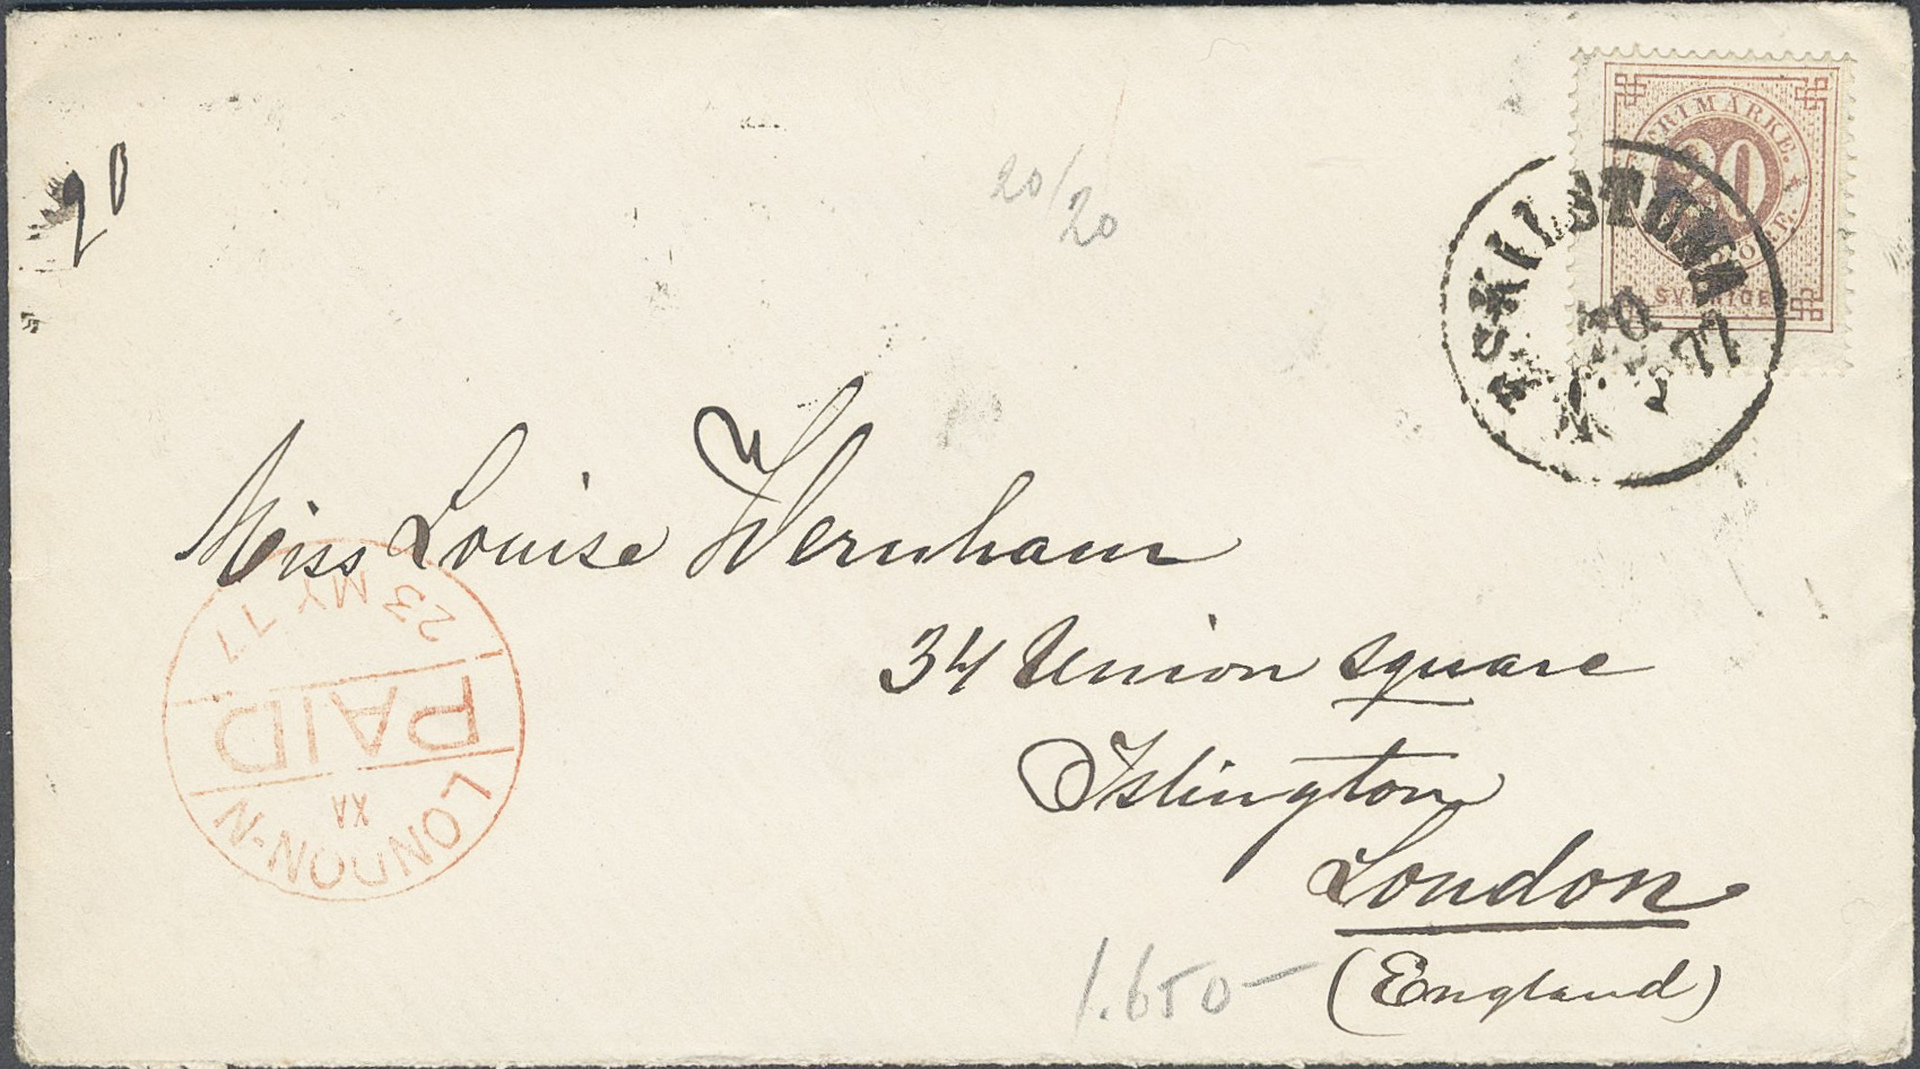 FRIMÄRKE.
20
SVERIGE
ESKILSTUNA
20
5
77
90
20/20
Miss Louise Wernham
34 Union Square
Islington
London
(England)
LONDON·N
XA
PAID
23 MY 77
1.650-